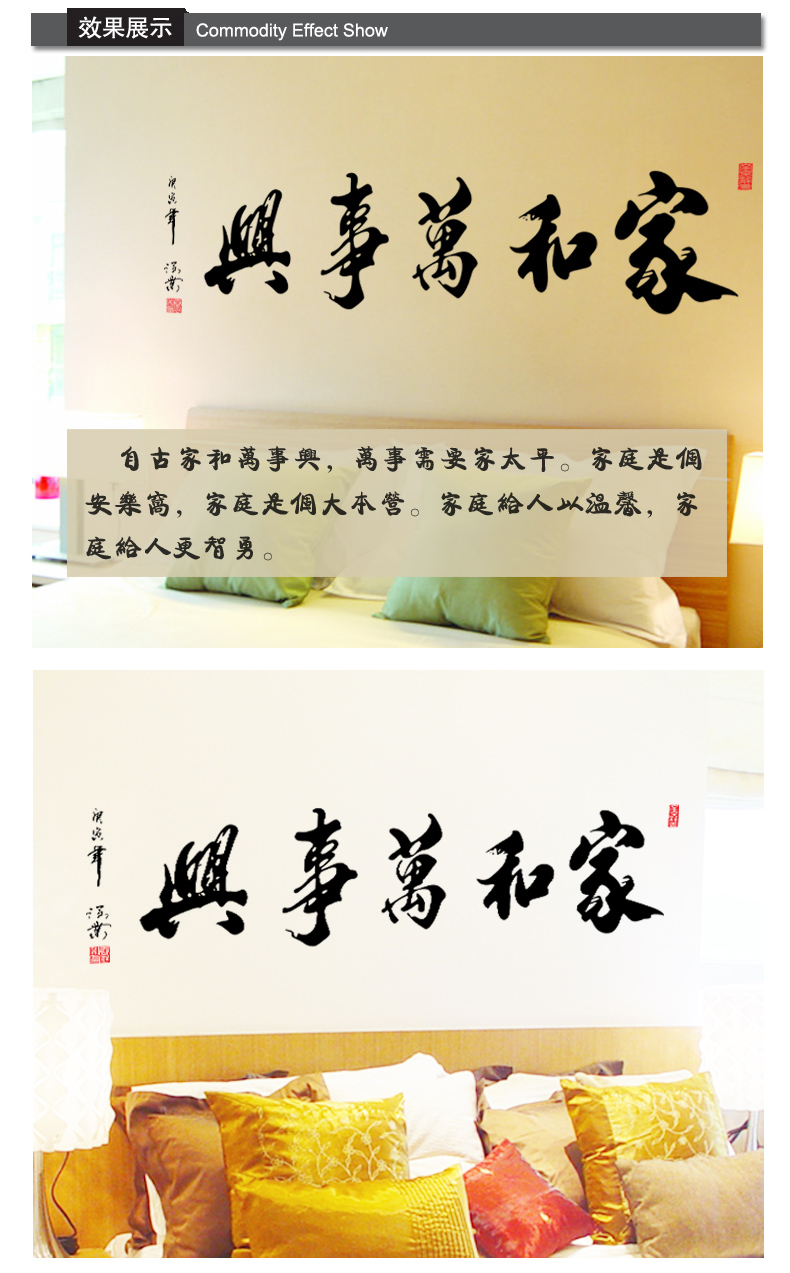 效果展示 Commodity Effect Show
家和萬事興
庚寅年
自古家和萬事興，萬事需要家太平。家庭是個
安樂窩，家庭是個大本營。家庭給人以溫馨，家
庭給人更智勇。
家和萬事興
庚寅年